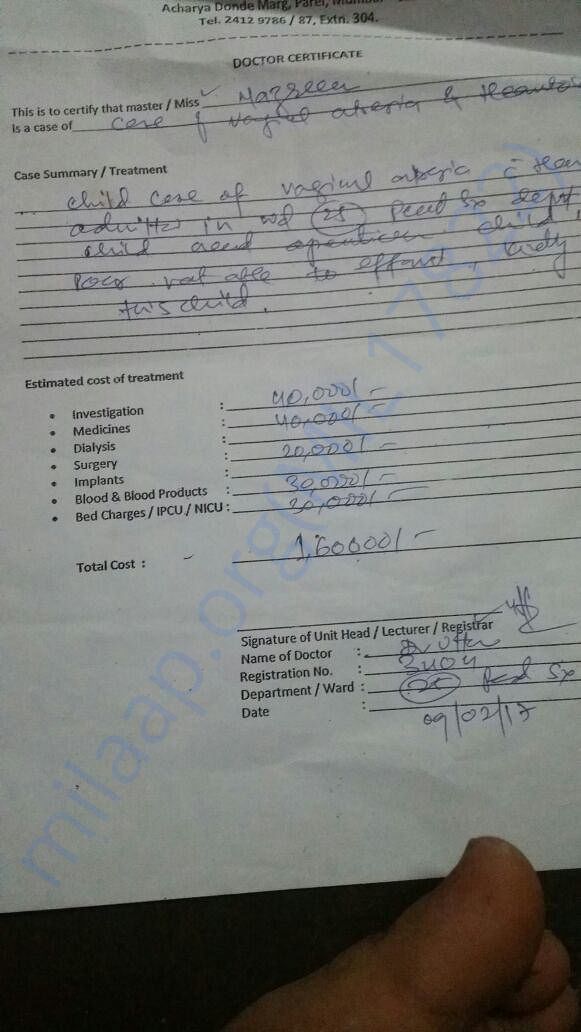 Acharya Donde Marg, Parel, Mumbai
Tel. 2412 9786 / 87, Extn. 304.
DOCTOR CERTIFICATE
This is to certify that master / Miss
Is a case of case of vaginal atresia &
Case Summary / Treatment
child case of vaginal atresia c
admitted in wd 25 Paed Sx dept,
child need operation. child,
poor not able to effort, kindly
this child.
Estimated cost of treatment
• Investigation : 40,000/-
• Medicines : 40,000/-
• Dialysis :
• Surgery : 20,000/-
• Implants :
• Blood & Blood Products : 30,000/-
• Bed Charges / IPCU / NICU : 30,000/-
Total Cost : - 1,60000/-
Signature of Unit Head / Lecturer / Registrar
Name of Doctor :
Registration No. :
Department / Ward : 25 Paed Sx
Date : 09/02/17
milaap.org